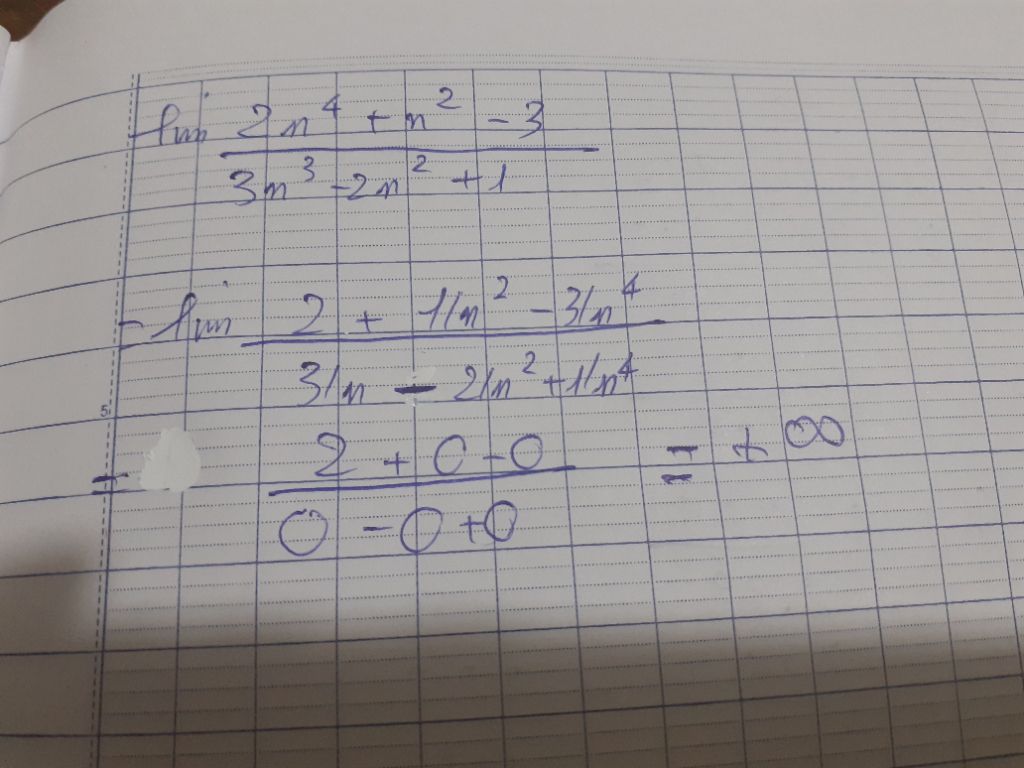 lim (2n⁴ + n² - 3) / (3n³ - 2n² + 1)
= lim (2 + 1/n² - 3/n⁴) / (3/n - 2/n² + 1/n⁴)
= (2 + 0 - 0) / (0 - 0 + 0) = + ∞